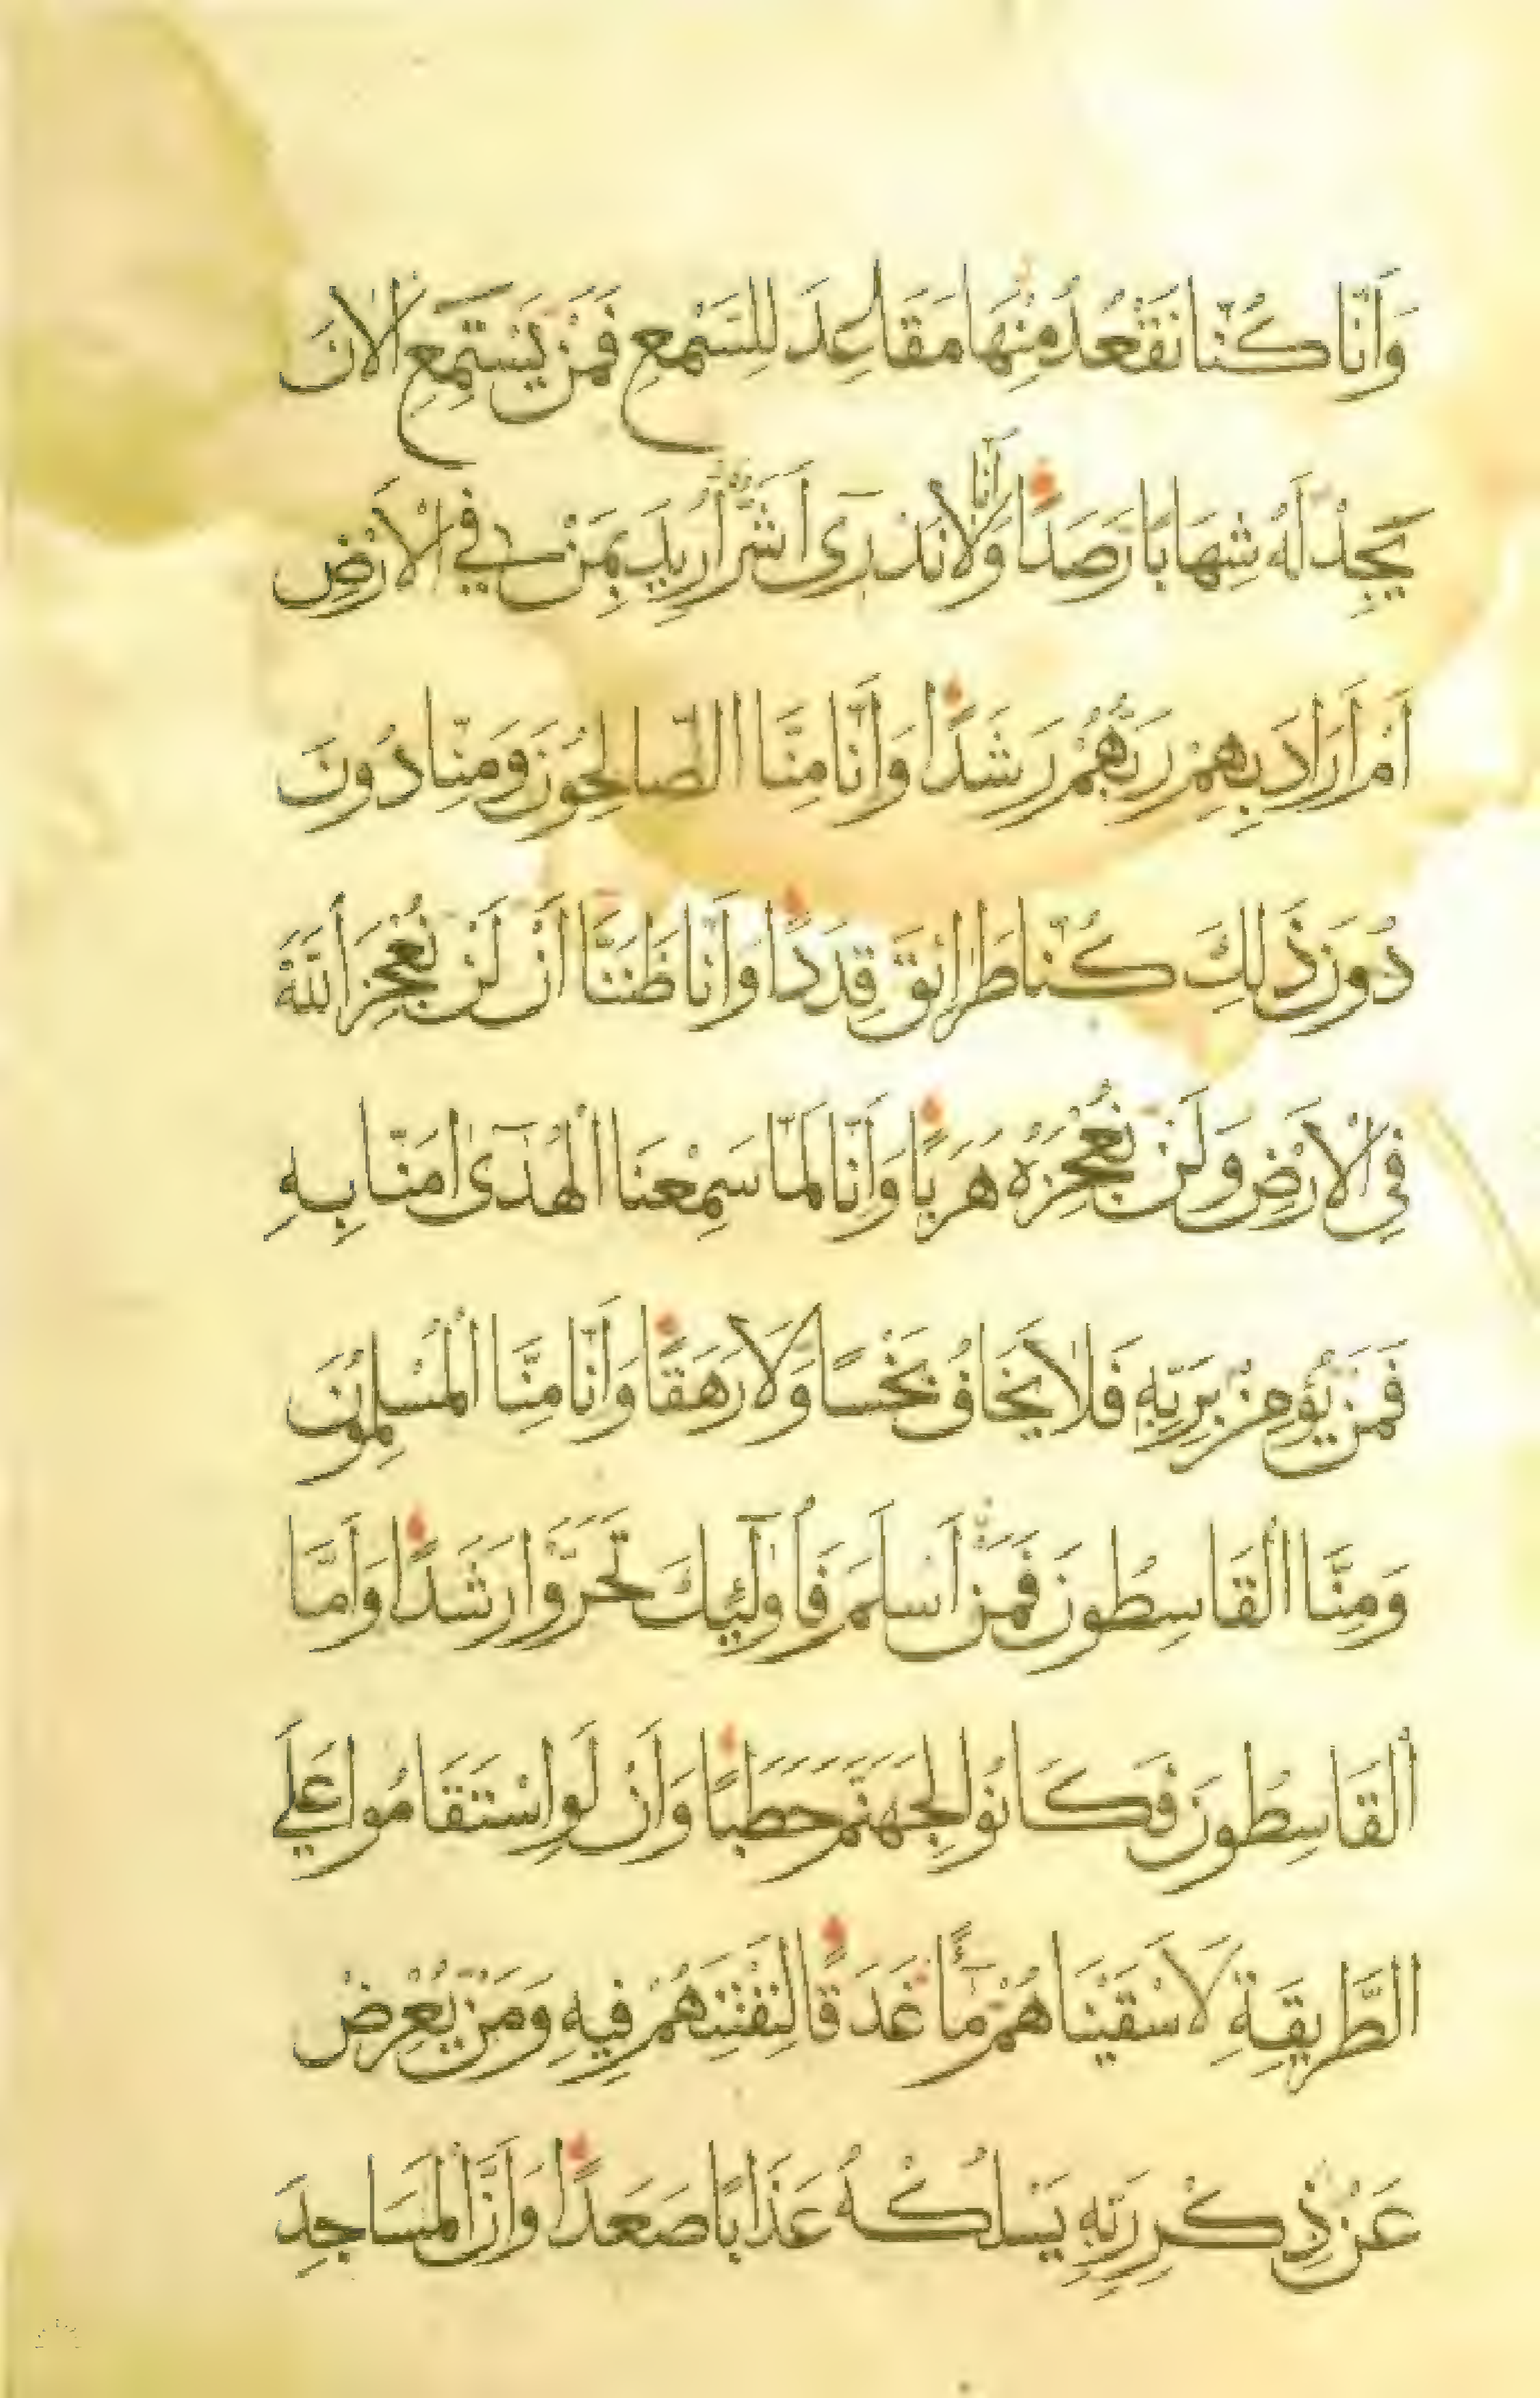 وَاَنَّا كُنَّا نَقْعُدُ مِنْهَا مَقَاعِدَ لِلسَّمْعِ فَمَنْ يَسْتَمِعِ الْاٰنَ
يَجِدْ لَهُ شِهَابًا رَصَدًا وَاَنَّا لَا نَدْرٖى اَشَرٌّ اُرٖيدَ بِمَنْ فِي الْاَرْضِ
اَمْ اَرَادَ بِهِمْ رَبُّهُمْ رَشَدًا وَاَنَّا مِنَّا الصَّالِحُونَ وَمِنَّا دُونَ
دُونَ ذٰلِكَ كُنَّا طَرَائِقَ قِدَدًا وَاَنَّا ظَنَنَّا اَنْ لَنْ نُعْجِزَ اللّٰهَ
فِي الْاَرْضِ وَلَنْ نُعْجِزَهُ هَرَبًا وَاَنَّا لَمَّا سَمِعْنَا الْهُدٰٓى اٰمَنَّا بِهِ
فَمَنْ يُؤْمِنْ بِرَبِّهِ فَلَا يَخَافُ بَخْسًا وَلَا رَهَقًا وَاَنَّا مِنَّا الْمُسْلِمُونَ
وَمِنَّا الْقَاسِطُونَ فَمَنْ اَسْلَمَ فَاُولٰٓئِكَ تَحَرَّوْا رَشَدًا وَاَمَّا
الْقَاسِطُونَ فَكَانُوا لِجَهَنَّمَ حَطَبًا وَاَنْ لَوِ اسْتَقَامُوا عَلَي
الطَّرٖيقَةِ لَاَسْقَيْنَاهُمْ مَٓاءً غَدَقًا لِنَفْتِنَهُمْ فٖيهِ وَمَنْ يُعْرِضْ
عَنْ ذِكْرِ رَبِّهِ يَسْلُكْهُ عَذَابًا صَعَدًا وَاَنَّ الْمَسَاجِدَ